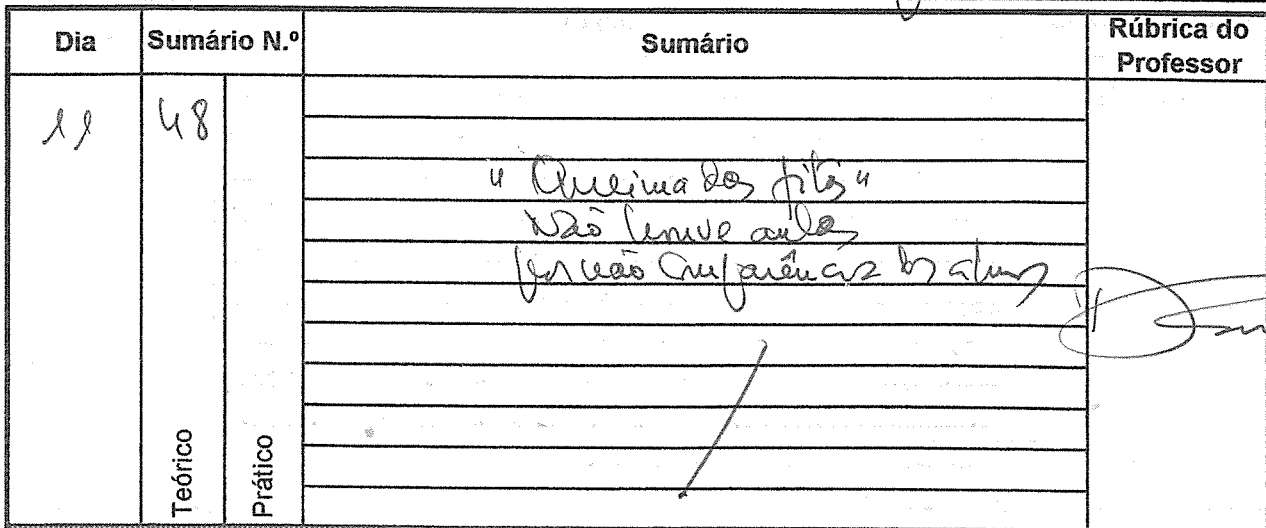 Dia Sumário N.º Sumário Rúbrica do Professor
11 48
"Queima das fitas"
Não houve aulas
por não comparência dos alunos
Teórico Prático